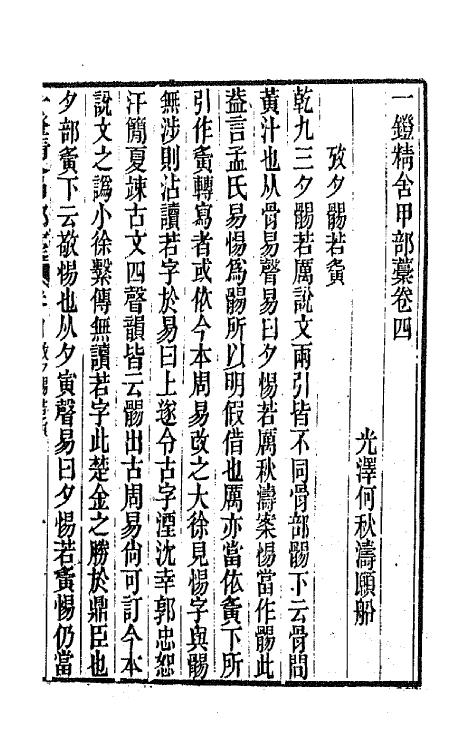 一鐙精舍甲部藁卷四
光澤何秋濤願船
攷夕䯜若夤
乾九三夕䯜若厲說文兩引皆不同骨部䯜下云骨間
黃汁也从骨易聲易曰夕惕若厲秋濤案惕當作䯜此
葢言孟氏易惕爲䯜所以明假借也厲亦當依夤下所
引作夤轉寫者或依今本周易改之大徐見惕字與䯜
無涉則沾讀若字於易曰上遂令古字湮沈幸郭忠恕
汗簡夏竦古文四聲韻皆云䯜出古周易尙可訂今本
說文之譌小徐繫傳無讀若字此楚金之勝於鼎臣也
夕部夤下云敬惕也从夕寅聲易曰夕惕若夤惕仍當